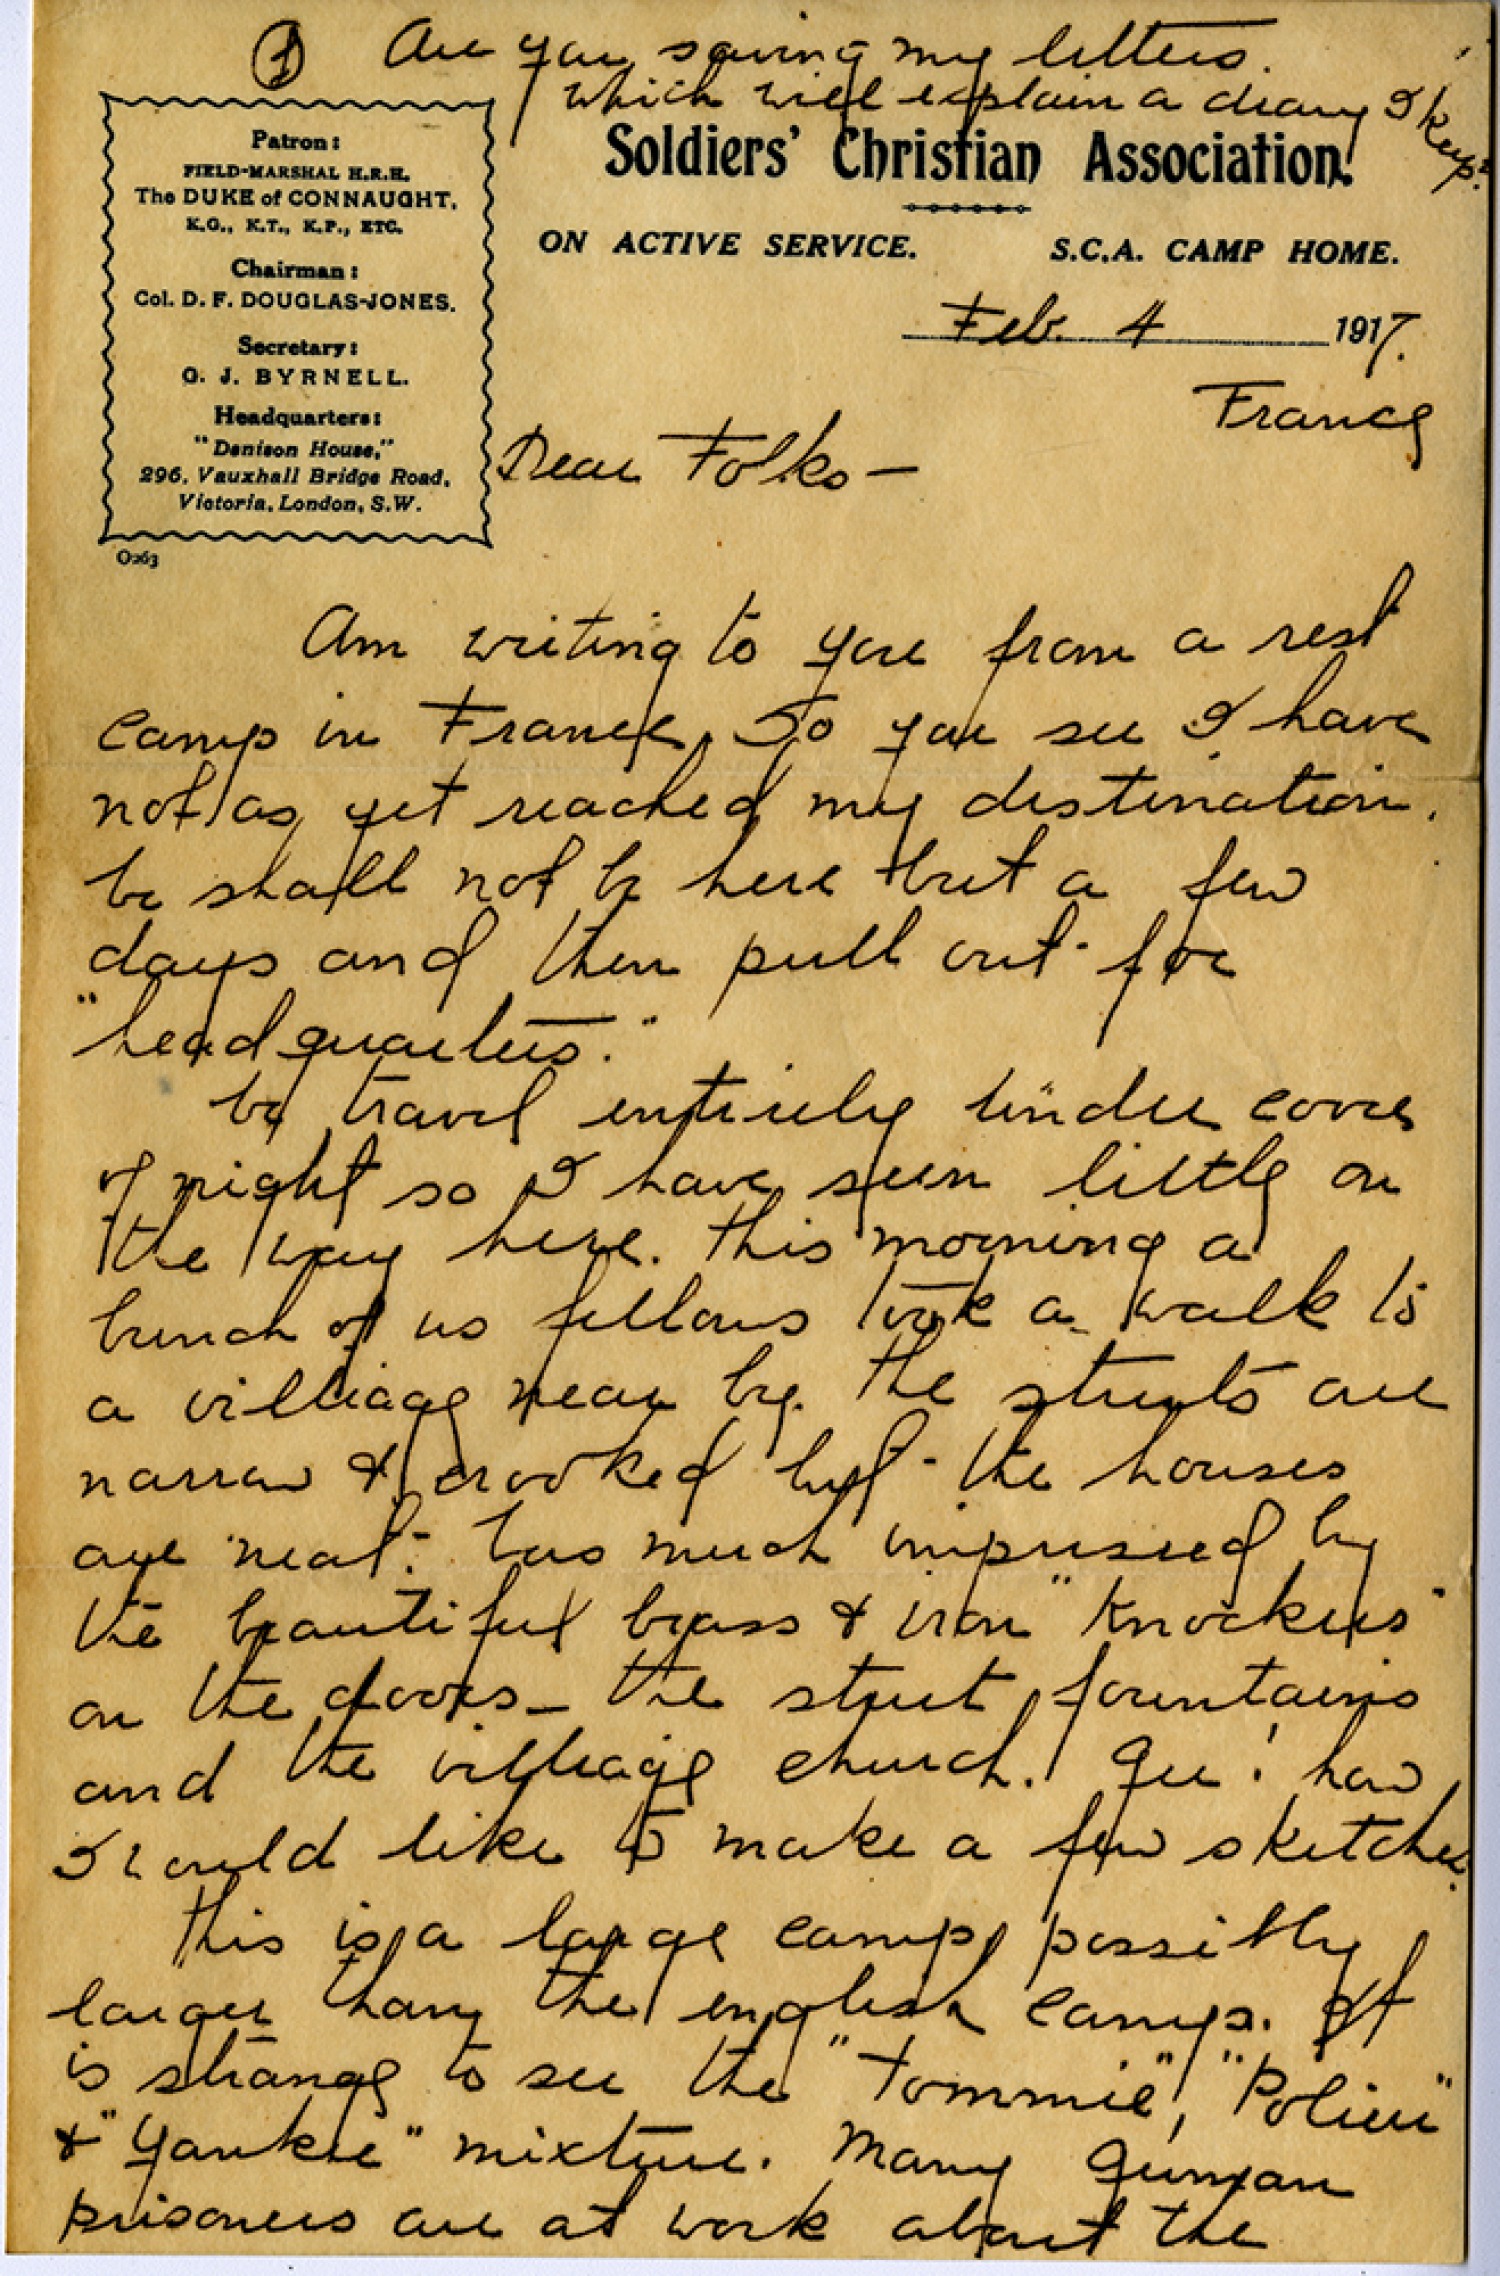 ① Are you saving my letters.
which will explain a diary I keep?
Patron:
FIELD-MARSHAL H.R.H.
The DUKE of CONNAUGHT,
K.G., K.T., K.P., ETC.
Chairman:
Col. D. F. DOUGLAS-JONES.
Secretary:
O. J. BYRNELL.
Headquarters:
"Denison House,"
296, Vauxhall Bridge Road,
Victoria, London, S.W.
O263
Soldiers' Christian Association.
ON ACTIVE SERVICE. S.C.A. CAMP HOME.
Feb. 4 1917.
France
Dear Folks —
Am writing to you from a rest
camp in France. So you see I have
not as yet reached my destination.
We shall not be here but a few
days and then pull out for
"headquarters."
We travel entirely under cover
of night so I have seen little on
the way here. This morning a
bunch of us fellows took a walk to
a villiage near by. The streets are
narrow & crooked but the houses
are neat. Was much impressed by
the beautiful brass & iron "Knockers"
on the doors — the street fountains
and the villiage church. Gee! how
I would like to make a few sketches.
This is a large camp, possibly
larger than the english camps. It
is strange to see the "Tommie", "Polieu"
& "Yankie" mixture. Many German
prisoners are at work about the